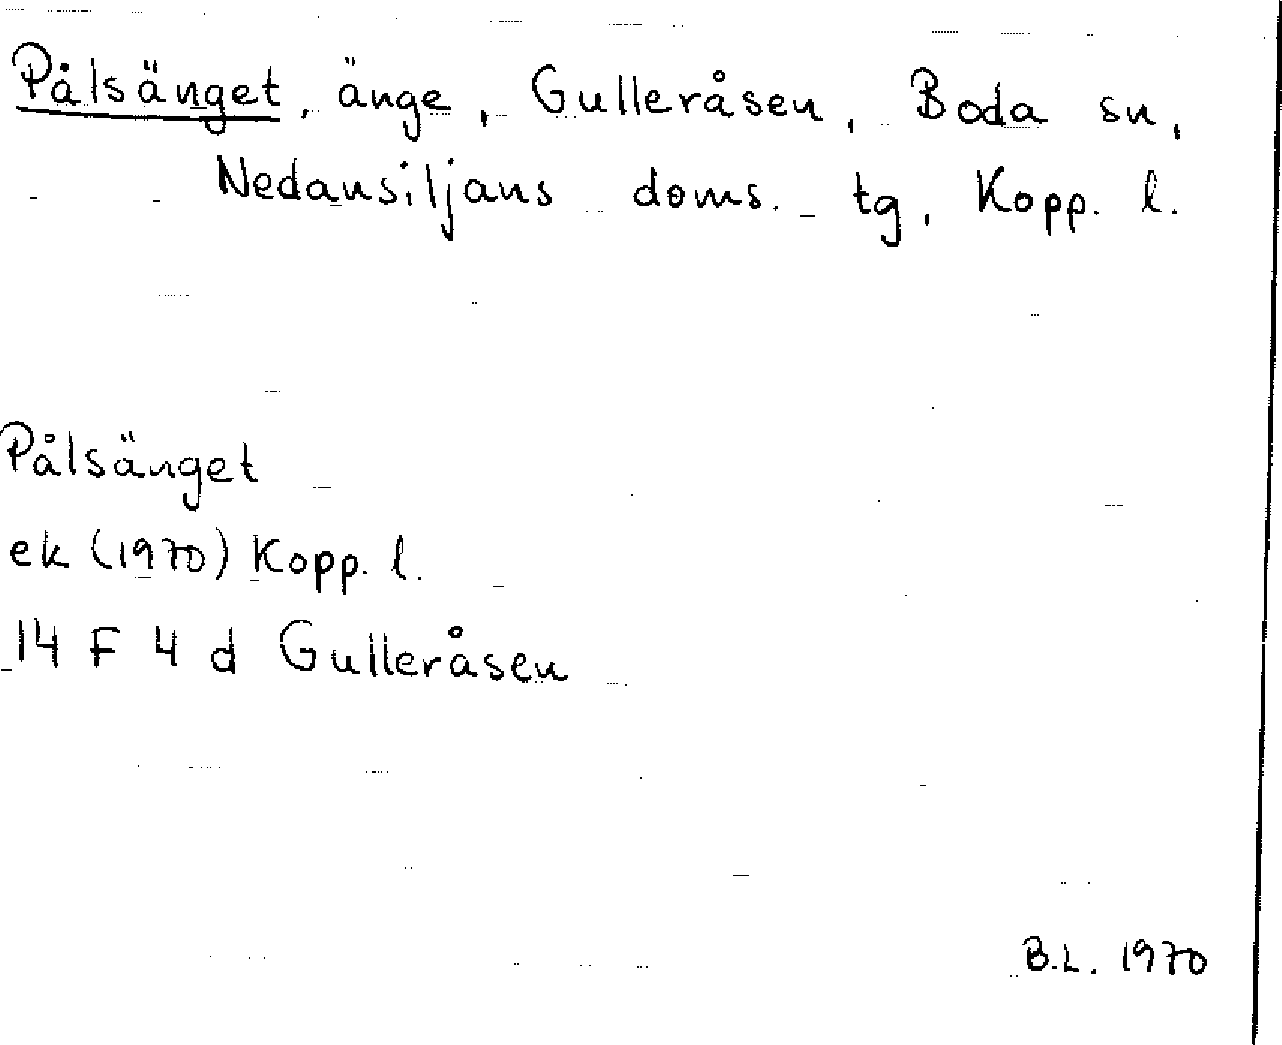 Pålsänget, änge, Gulleråsen, Boda sn,
Nedansiljans doms. tg, Kopp. l.
Pålsänget
ek (1970) Kopp. l.
14 F 4 d Gulleråsen
B.L. 1970